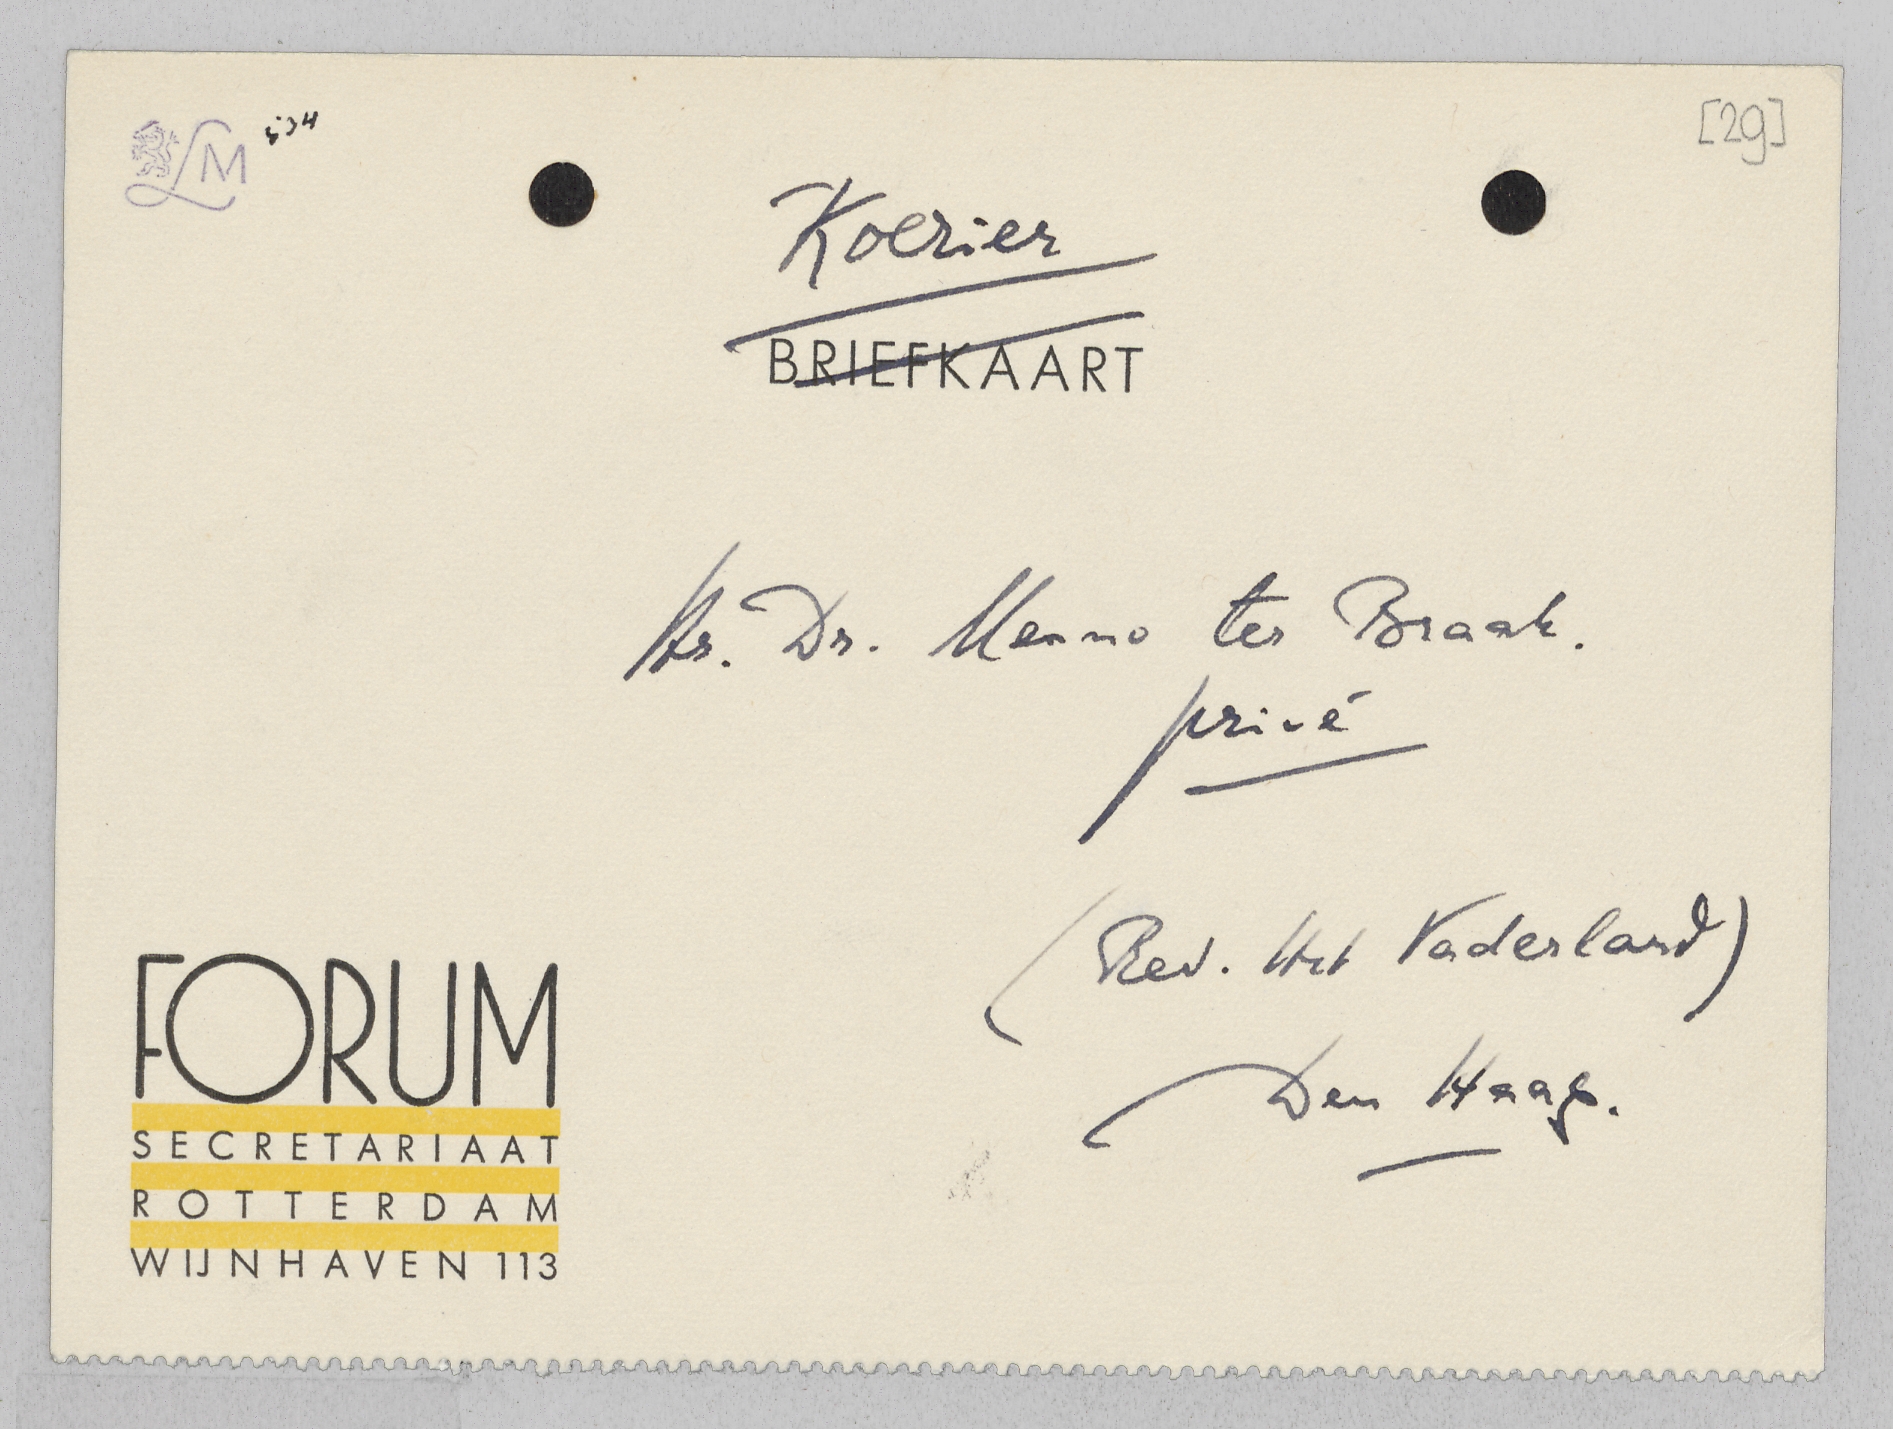 LM 534
[29]
Koerier
BRIEFKAART
Hr. Dr. Menno ter Braak.
privé
(Red. Het Vaderland)
Den Haag.
FORUM
SECRETARIAAT
ROTTERDAM
WIJNHAVEN 113